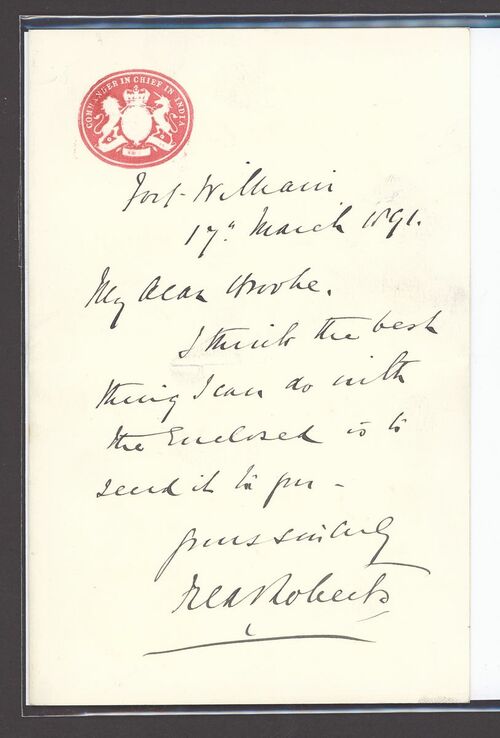 COMMANDER IN CHIEF IN INDIA
Fort William
17th March 1891.
My dear Brooke.
I think the best
thing I can do with
the Enclosed is to
send it to you -
yours sincerely
Fred Roberts